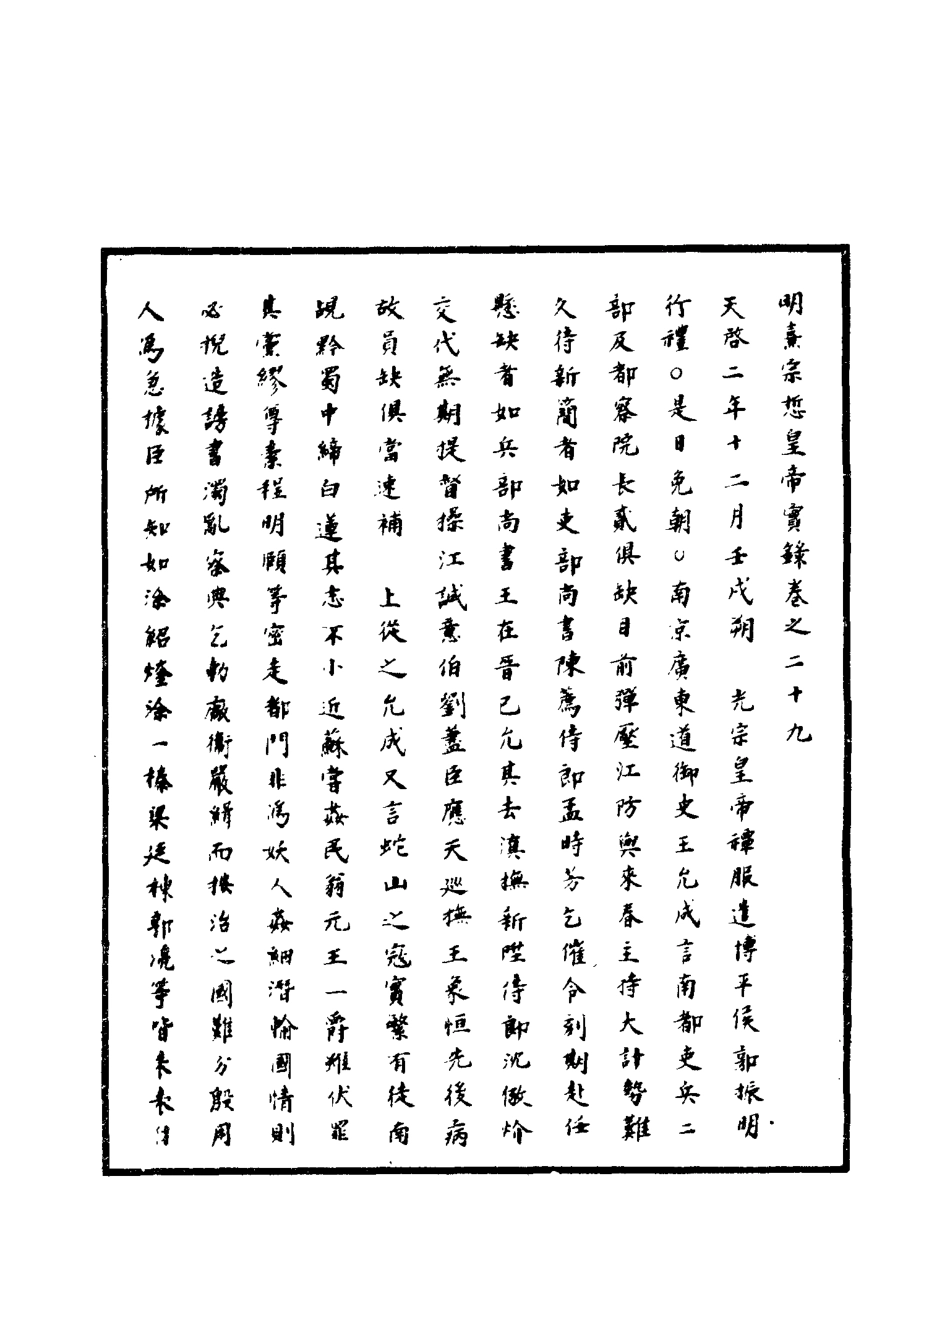 明熹宗悊皇帝實錄卷之二十九
天啓二年十二月壬戌朔　光宗皇帝禫服遣博平侯郭振明
行禮○是日免朝○南京廣東道御史王允成言南都吏兵二
部及都察院長貳俱缺目前彈壓江防與來春主持大計勢難
久待新簡者如吏部尚書陳薦侍郎孟時芳乞催令刻期赴任
懸缺者如兵部尚書王在晉已允其去滇撫新陞侍郎沈儆炌
交代無期提督操江誠意伯劉藎臣應天巡撫王象恒先後病
故員缺俱當速補　上從之允成又言蛇山之寇實繁有徒南
覘黔蜀中締白蓮其志不小近蘇常姦民翁元王一爵雖伏罪
其黨繆尊素程明頤等密走都門非為妖人姦細潛輸國情則
必捏造謗書濁亂察典乞勅廠衛嚴緝而按治之國難方殷用
人為急據臣所知如涂紹煃涂一榛梁廷棟郭漉等皆未表